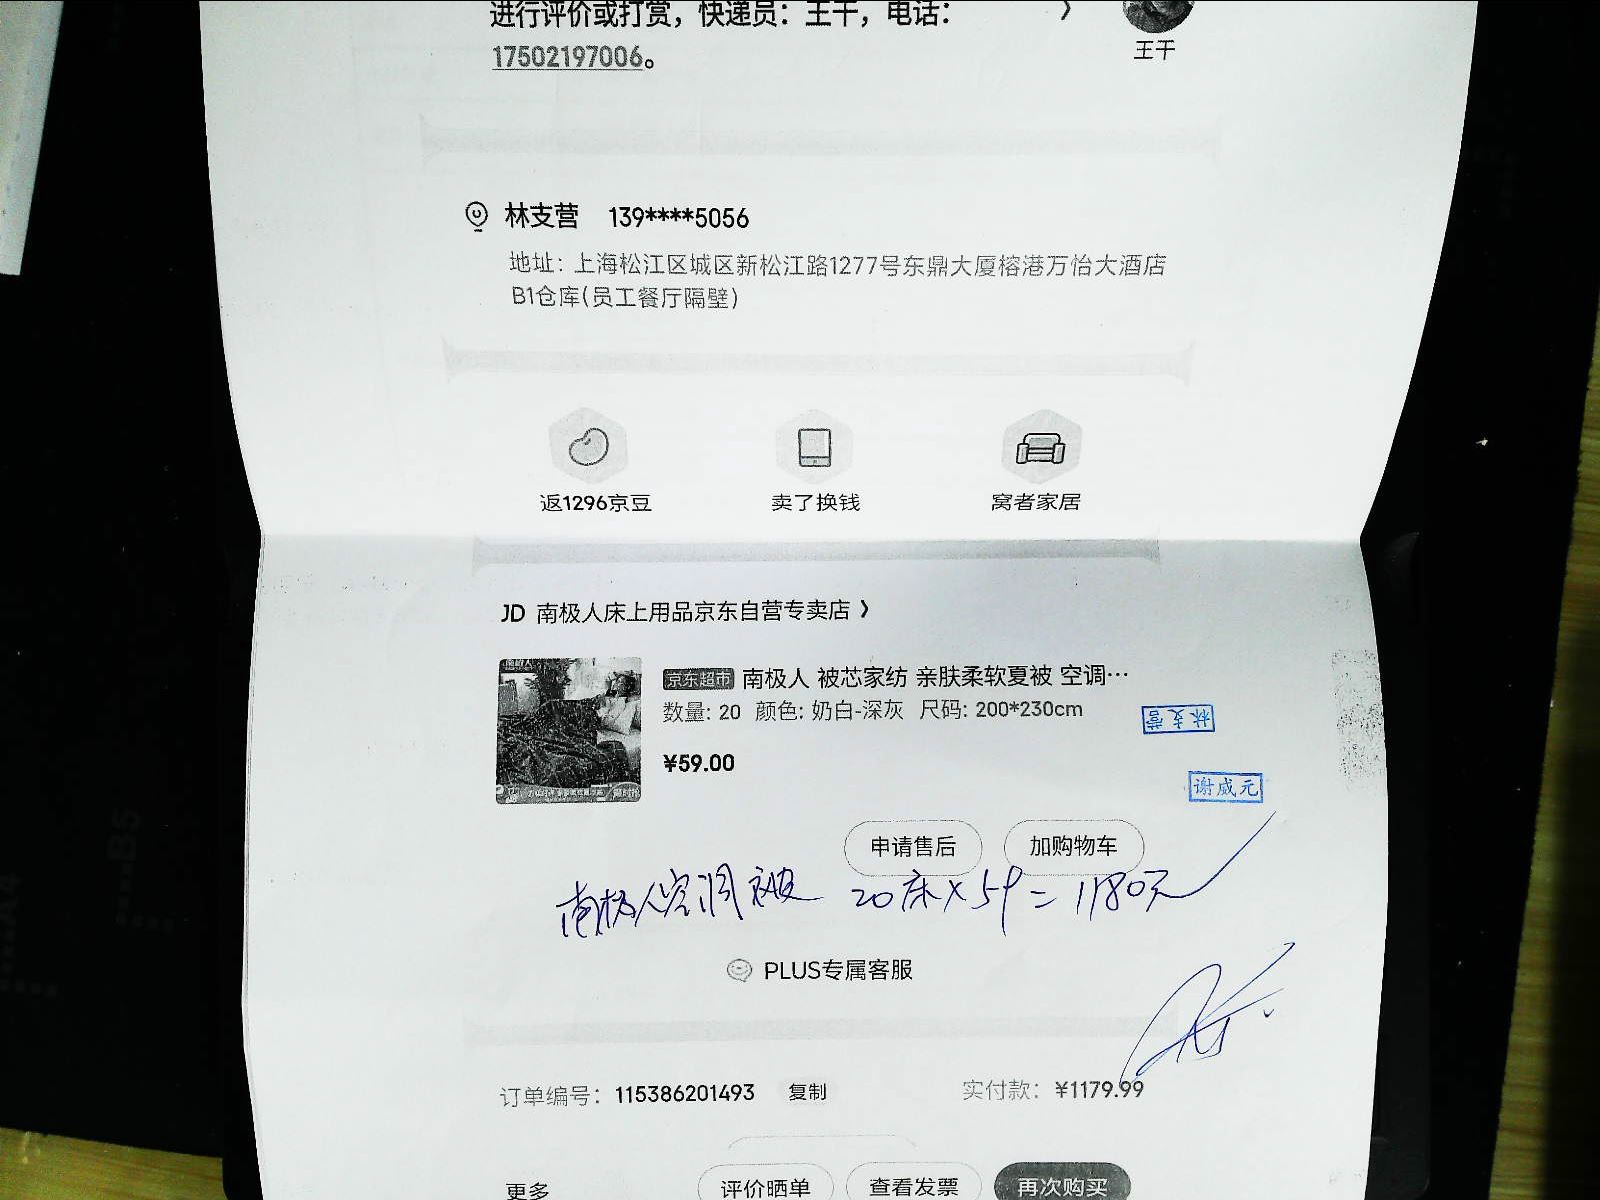 进行评价或打赏，快递员：王干，电话：
17502197006。
王干
林支营 139****5056
地址：上海松江区城区新松江路1277号东鼎大厦榕港万怡大酒店
B1仓库(员工餐厅隔壁)
返1296京豆 卖了换钱 窝者家居
JD 南极人床上用品京东自营专卖店
南极人
京东超市 南极人 被芯家纺 亲肤柔软夏被 空调…
数量: 20 颜色: 奶白-深灰 尺码: 200*230cm
林支营
¥59.00
谢威元
申请售后 加购物车
南极人空调被 20床×59=1180元
PLUS专属客服
订单编号：115386201493 复制 实付款：¥1179.99
更多 评价晒单 查看发票 再次购买
B5
A4